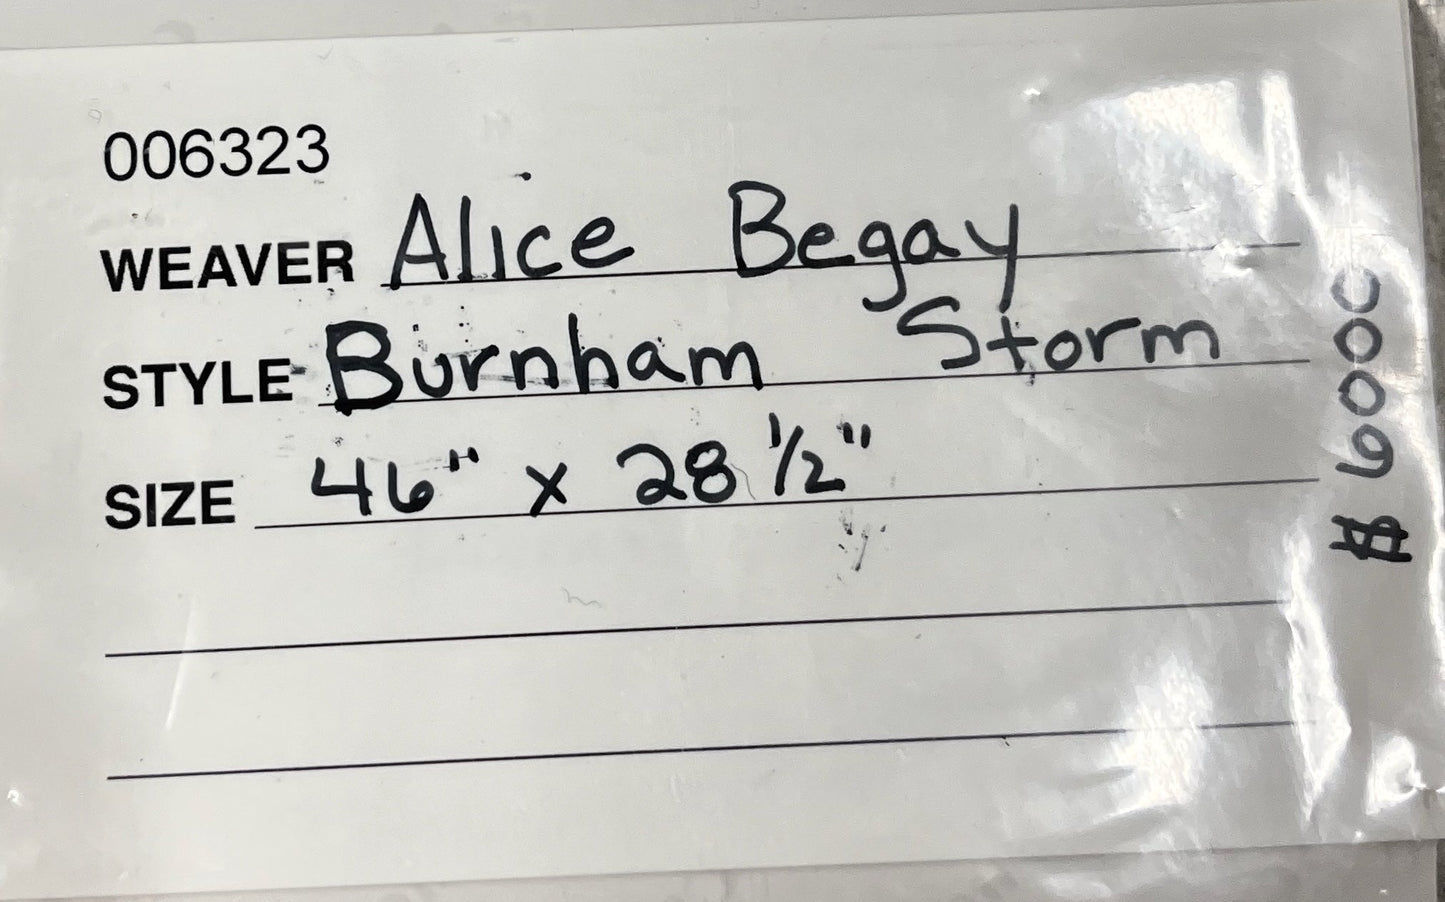 006323
WEAVER Alice Begay
STYLE Burnham Storm
SIZE 46" x 28 1/2"
$ 6000